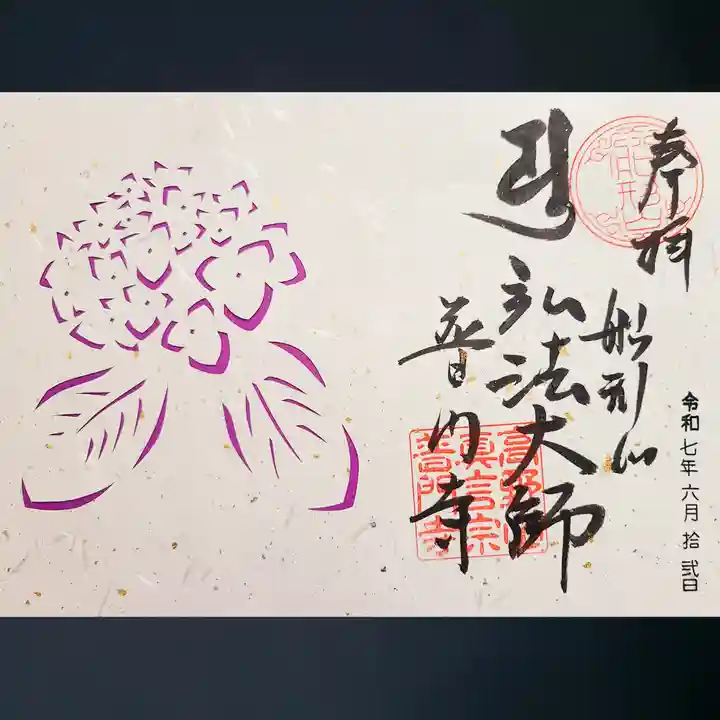 奉拝
船形山
弘法大師
普門寺
令和七年六月拾弐日
高野山
真言宗
普門寺